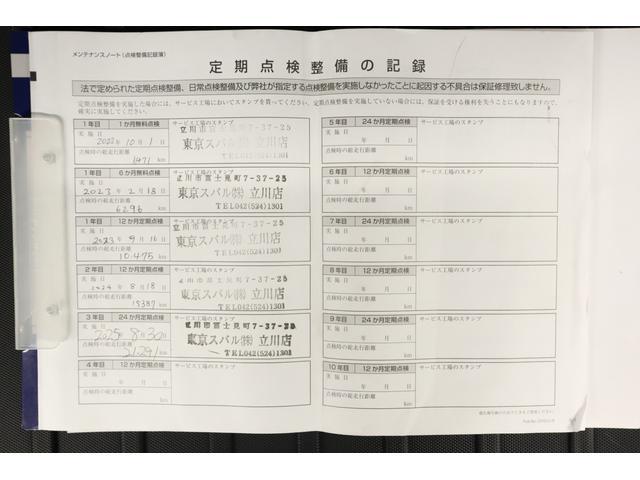 メンテナンスノート(点検整備記録簿)
定期点検整備の記録
法で定められた定期点検整備、日常点検整備及び弊社が指定する点検整備を実施しなかったことに起因する不具合は保証修理致しません。
定期点検整備を実施した場合には、サービス工場においてスタンプを貰ってください。定期点検整備を実施していない場合には、保証を受ける権利を失うことにもなりますので、
確実に実施してください。
1年目 1か月無料点検 サービス工場のスタンプ
実施日
2022年10月1日
点検時の総走行距離
1471 km
立川市富士見町7-37-25
東京スバル㈱ 立川店
TEL042(524)1301
1年目 6か月無料点検 サービス工場のスタンプ
実施日
2023年2月18日
点検時の総走行距離
6296 km
立川市富士見町7-37-25
東京スバル㈱ 立川店
TEL042(524)1301
1年目 12か月定期点検 サービス工場のスタンプ
実施日
2023年9月16日
点検時の総走行距離
10.475 km
立川市富士見町7-37-25
東京スバル㈱ 立川店
TEL042(524)1301
2年目 12か月定期点検 サービス工場のスタンプ
実施日
年8月18日
点検時の総走行距離
15387 km
立川市富士見町7-37-25
東京スバル㈱ 立川店
TEL042(524)1301
3年目 24か月定期点検 サービス工場のスタンプ
実施日
2025年8月30日
点検時の総走行距離
21,291 km
立川市富士見町7-37-25
東京スバル㈱ 立川店
TEL042(524)1301
4年目 12か月定期点検 サービス工場のスタンプ
実施日
年 月 日
点検時の総走行距離
km
5年目 24か月定期点検 サービス工場のスタンプ
実施日
年 月 日
点検時の総走行距離
km
6年目 12か月定期点検 サービス工場のスタンプ
実施日
年 月 日
点検時の総走行距離
km
7年目 24か月定期点検 サービス工場のスタンプ
実施日
年 月 日
点検時の総走行距離
km
8年目 12か月定期点検 サービス工場のスタンプ
実施日
年 月 日
点検時の総走行距離
km
9年目 24か月定期点検 サービス工場のスタンプ
実施日
年 月 日
点検時の総走行距離
km
10年目 12か月定期点検 サービス工場のスタンプ
実施日
年 月 日
点検時の総走行距離
km